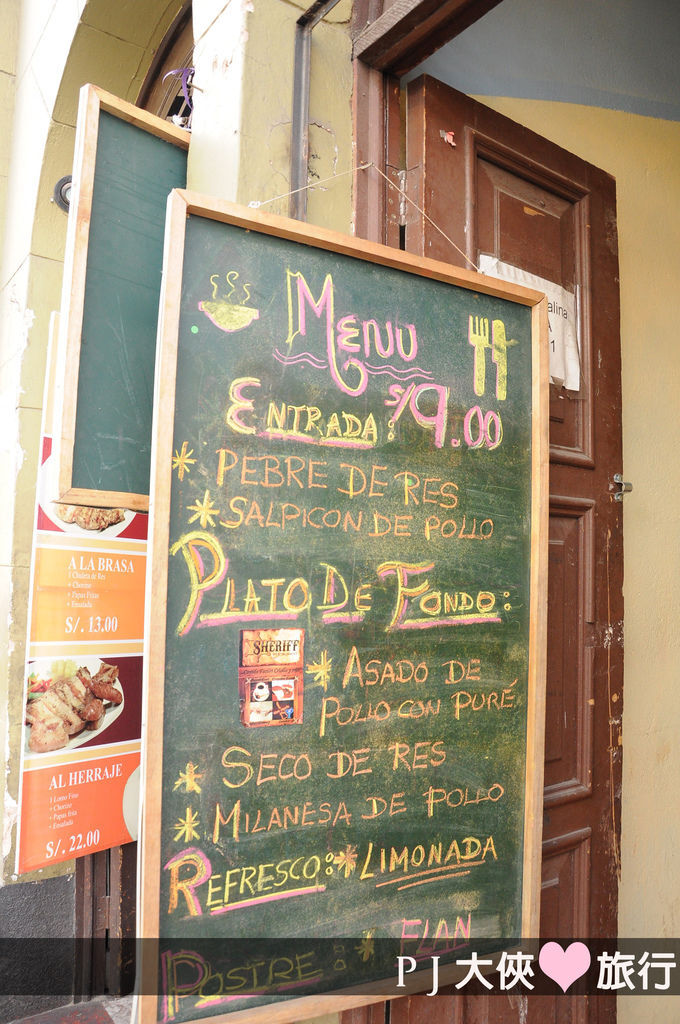 MENU
S/9.00
ENTRADA:
* PEBRE DE RES
* SALPICON DE POLLO
PLATO DE FONDO:
SHERIFF
* ASADO DE
POLLO CON PURÉ
* SECO DE RES
* MILANESA DE POLLO
REFRESCO: * LIMONADA
POSTRE : * FLAN
A LA BRASA
1 Chuleta de Res
+ Chorizo
+ Papas Fritas
+ Ensalada
S/. 13.00
AL HERRAJE
1 Lomo Fino
+ Chorizo
+ Papas frita
+ Ensalada
S/. 22.00
alina
A
1
PJ大俠♥旅行